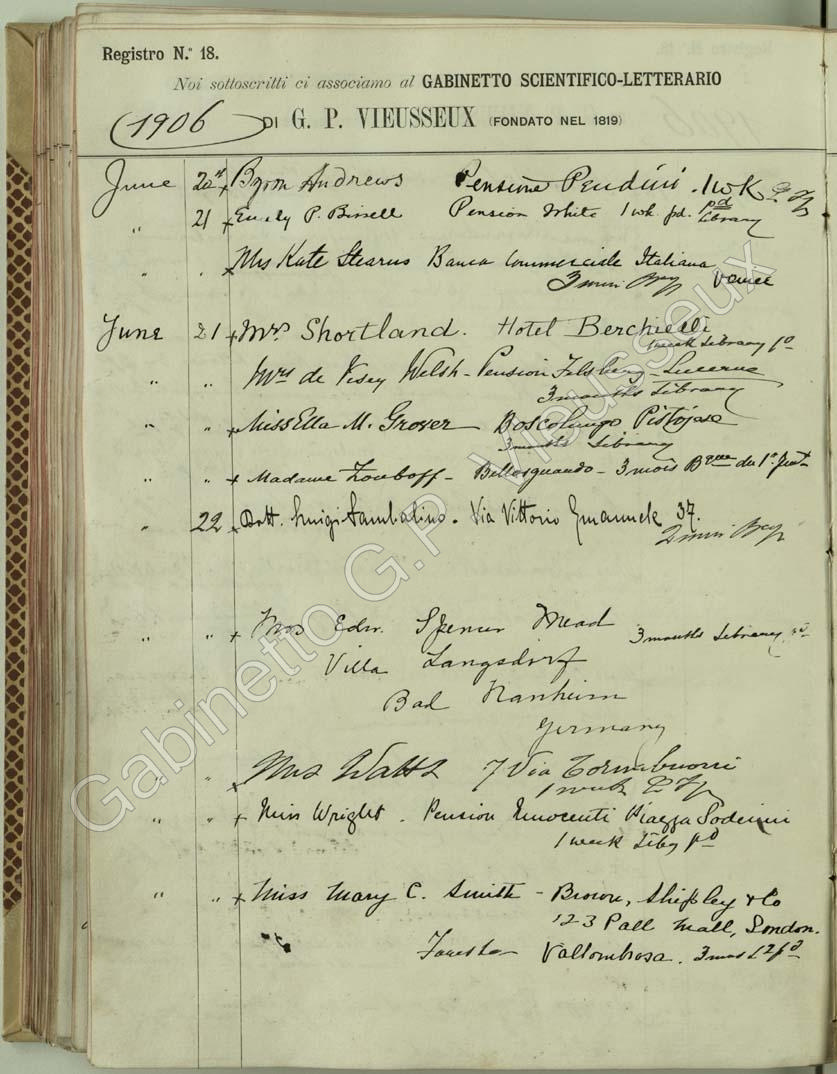 Registro N.º 18.
Noi sottoscritti ci associamo al GABINETTO SCIENTIFICO-LETTERARIO
1906 DI G. P. VIEUSSEUX (FONDATO NEL 1819)
June 20 Byron Andrews Pensione Pendini. 1 wk
" 21 Emily P. Bissell Pension White 1 wk. pd. Library
" " Mrs Kate Stearns Banca Commerciale Italiana
Venice
June 21 Mrs Shortland. Hotel Berchielli
1 week Library pd
" " Mrs de Vesey Welsh - Pension Felsberg Lucerne
3 months Library
" " Miss Ella M. Grover Boscolungo Pistojese
3 months Library
" " Madame Zouboff - Bellosguardo - 3 mois du 1º
" 22 Dott. Luigi Sambalino. Via Vittorio Emanuele 37.
" " Mrs Edw. Spencer Mead 3 months Library pd
Villa Langsdorf
Bad Nauheim
Germany
" " Mrs Watts 7 Via Tornabuoni
1 week
" " Miss Wright. Pension Innocenti Piazza Soderini
1 week Liby pd
" " Miss Mary C. Smith - Brown, Shipley & Co
123 Pall Mall, London.
Vallombrosa. 3 mos L pd
Gabinetto G.P. Vieusseux